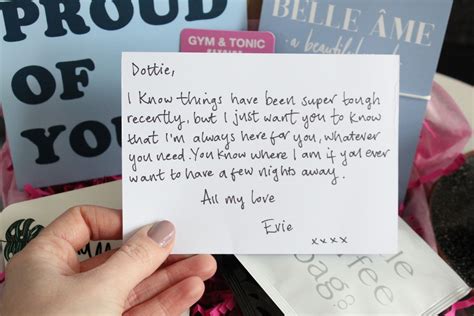 PROUD
OF
YOU
GYM & TONIC
BELLE ÂME
Dottie,
I know things have been super tough
recently, but I just want you to know
that I'm always here for you, whatever
you need. You know where I am if you ever
want to have a few nights away.
All my love
Evie
xxxx
bag